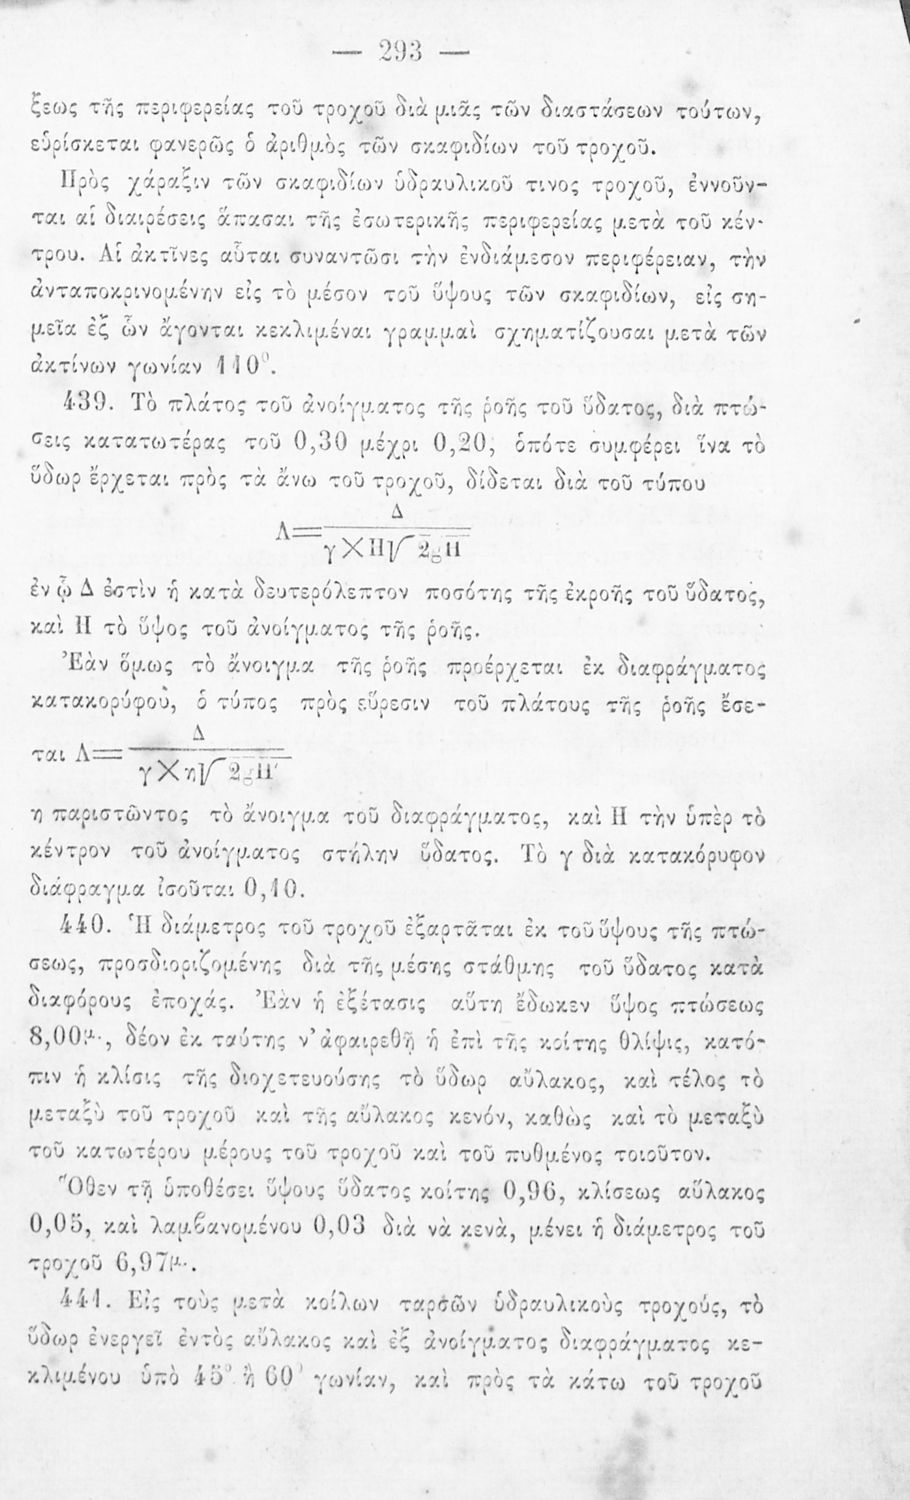 — 293 —
ξεως τῆς περιφερείας τοῦ τροχοῦ διὰ μιᾶς τῶν διαστάσεων τούτων,
εὑρίσκεται φανερῶς ὁ ἀριθμὸς τῶν σκαφιδίων τοῦ τροχοῦ.
Πρὸς χάραξιν τῶν σκαφιδίων ὑδραυλικοῦ τινος τροχοῦ, ἐννοῦν-
ται αἱ διαιρέσεις ἅπασαι τῆς ἐσωτερικῆς περιφερείας μετὰ τοῦ κέν-
τρου. Αἱ ἀκτῖνες αὗται συναντῶσι τὴν ἐνδιάμεσον περιφέρειαν, τὴν
ἀνταποκρινομένην εἰς τὸ μέσον τοῦ ὕψους τῶν σκαφιδίων, εἰς ση-
μεῖα ἐξ ὧν ἄγονται κεκλιμέναι γραμμαὶ σχηματίζουσαι μετὰ τῶν
ἀκτίνων γωνίαν 110°.
439. Τὸ πλάτος τοῦ ἀνοίγματος τῆς ῥοῆς τοῦ ὕδατος, διὰ πτώ-
σεις κατατωτέρας τοῦ 0,30 μέχρι 0,20, ὁπότε συμφέρει ἵνα τὸ
ὕδωρ ἔρχεται πρὸς τὰ ἄνω τοῦ τροχοῦ, δίδεται διὰ τοῦ τύπου
Δ
Λ=
γ×Η√2gΗ
ἐν ᾧ Δ ἐστὶν ἡ κατὰ δευτερόλεπτον ποσότης τῆς ἐκροῆς τοῦ ὕδατος,
καὶ Η τὸ ὕψος τοῦ ἀνοίγματος τῆς ῥοῆς.
Ἐὰν ὅμως τὸ ἄνοιγμα τῆς ῥοῆς προέρχεται ἐκ διαφράγματος
κατακορύφου, ὁ τύπος πρὸς εὕρεσιν τοῦ πλάτους τῆς ῥοῆς ἔσε-
Δ
ται Λ=
γ×η√2gΗ'
η παριστῶντος τὸ ἄνοιγμα τοῦ διαφράγματος, καὶ Η τὴν ὑπὲρ τὸ
κέντρον τοῦ ἀνοίγματος στήλην ὕδατος. Τὸ γ διὰ κατακόρυφον
διάφραγμα ἰσοῦται 0,10.
440. Ἡ διάμετρος τοῦ τροχοῦ ἐξαρτᾶται ἐκ τοῦ ὕψους τῆς πτώ-
σεως, προσδιοριζομένης διὰ τῆς μέσης στάθμης τοῦ ὕδατος κατὰ
διαφόρους ἐποχάς. Ἐὰν ἡ ἐξέτασις αὕτη ἔδωκεν ὕψος πτώσεως
8,00μ., δέον ἐκ ταύτης ν' ἀφαιρεθῇ ἡ ἐπὶ τῆς κοίτης θλίψις, κατό-
πιν ἡ κλίσις τῆς διοχετευούσης τὸ ὕδωρ αὔλακος, καὶ τέλος τὸ
μεταξὺ τοῦ τροχοῦ καὶ τῆς αὔλακος κενόν, καθὼς καὶ τὸ μεταξὺ
τοῦ κατωτέρου μέρους τοῦ τροχοῦ καὶ τοῦ πυθμένος τοιοῦτον.
Ὅθεν τῇ ὑποθέσει ὕψους ὕδατος κοίτης 0,96, κλίσεως αὔλακος
0,05, καὶ λαμβανομένου 0,03 διὰ νὰ κενὰ, μένει ἡ διάμετρος τοῦ
τροχοῦ 6,97μ..
441. Εἰς τοὺς μετὰ κοίλων ταρσῶν ὑδραυλικοὺς τροχούς, τὸ
ὕδωρ ἐνεργεῖ ἐντὸς αὔλακος καὶ ἐξ ἀνοίγματος διαφράγματος κε-
κλιμένου ὑπὸ 45° ἢ 60° γωνίαν, καὶ πρὸς τὰ κάτω τοῦ τροχοῦ